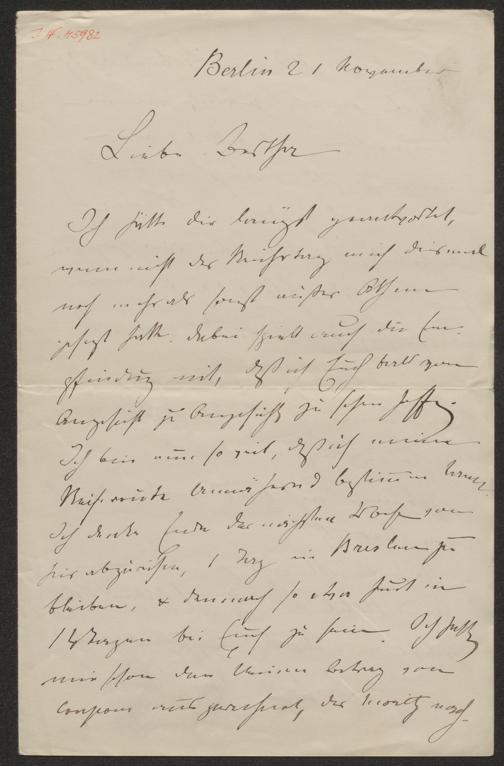 I. N. 115982
Berlin 21 November
Liebe Bertha
Ich hätte dir längst geantwortet,
wenn nicht der Reichstag mich diesmal
noch mehr als sonst außer Athem
gesetzt hätte. Dabei spielt auch die Em-
pfindung mit, daß ich Euch bald von
Angesicht zu Angesicht zu sehen hoffe.
Ich bin nun so weit, daß ich meine
Reiseroute annähernd bestimmen kann.
Ich denke Ende der nächsten Woche von
hier abzureisen, 1 Tag in Breslau zu
bleiben, & demnach so etwa heut in
14 Tagen bei Euch zu sein. Ich hatte
mir schon den kleinen Betrag von
Coupons ausgerechnet, der Moritz nach-